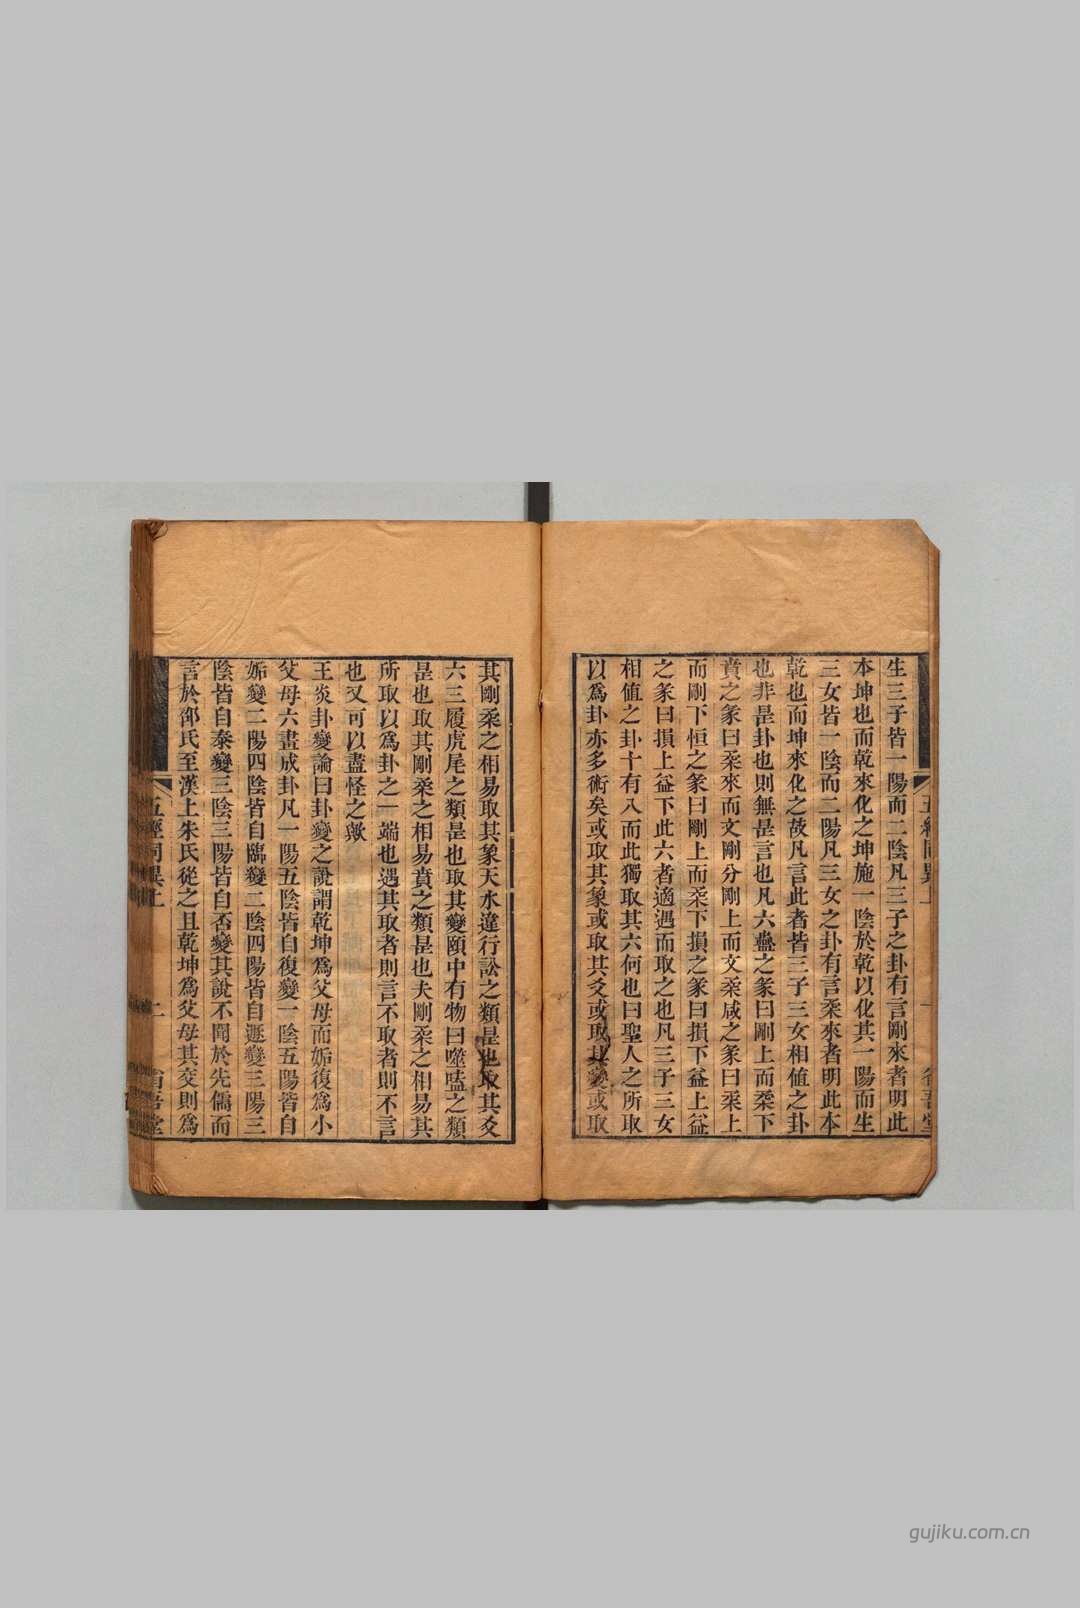 生三子皆一陽而二陰凡三子之卦有言剛來者明此
本坤也而乾來化之坤施一陰於乾以化其一陽而生
三女皆一陰而二陽凡三女之卦有言柔來者明此本
乾也而坤來化之故凡言此者皆三子三女相値之卦
也非是卦也則無是言也凡六蠱之彖曰剛上而柔下
賁之彖曰柔來而文剛分剛上而文柔咸之彖曰柔上
而剛下恒之彖曰剛上而柔下損之彖曰損下益上益
之彖曰損上益下此六者適遇而取之也凡三子三女
相値之卦十有八而此獨取其六何也曰聖人之所取
以爲卦亦多術矣或取其象或取其爻或取其變或取
其剛柔之相易取其象天水違行訟之類是也取其爻
六三履虎尾之類是也取其變頤中有物曰噬嗑之類
是也取其剛柔之相易賁之類是也夫剛柔之相易其
所取以爲卦之一端也遇其取者則言不取者則不言
也又可以盡怪之歟
王炎卦變論曰卦變之說謂乾坤爲父母而姤復爲小
父母六畫成卦凡一陽五陰皆自復變一陰五陽皆自
姤變二陽四陰皆自臨變二陰四陽皆自遯變三陽三
陰皆自泰變三陰三陽皆自否變其說不聞於先儒而
言於邵氏至漢上朱氏從之且乾坤爲父母其交則爲
五經同異上
二
省吾堂
gujiku.com.cn